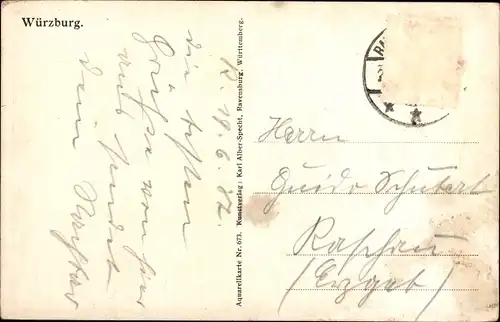 Würzburg.
R. 19.6.
die besten
Grüße von hier
aus sendet
dein
Aquarellkarte Nr. 673. Kunstverlag: Karl Alber-Specht, Ravensburg, Württemberg.
Herrn
Guido Schubert
Raschau
(Erzgeb)